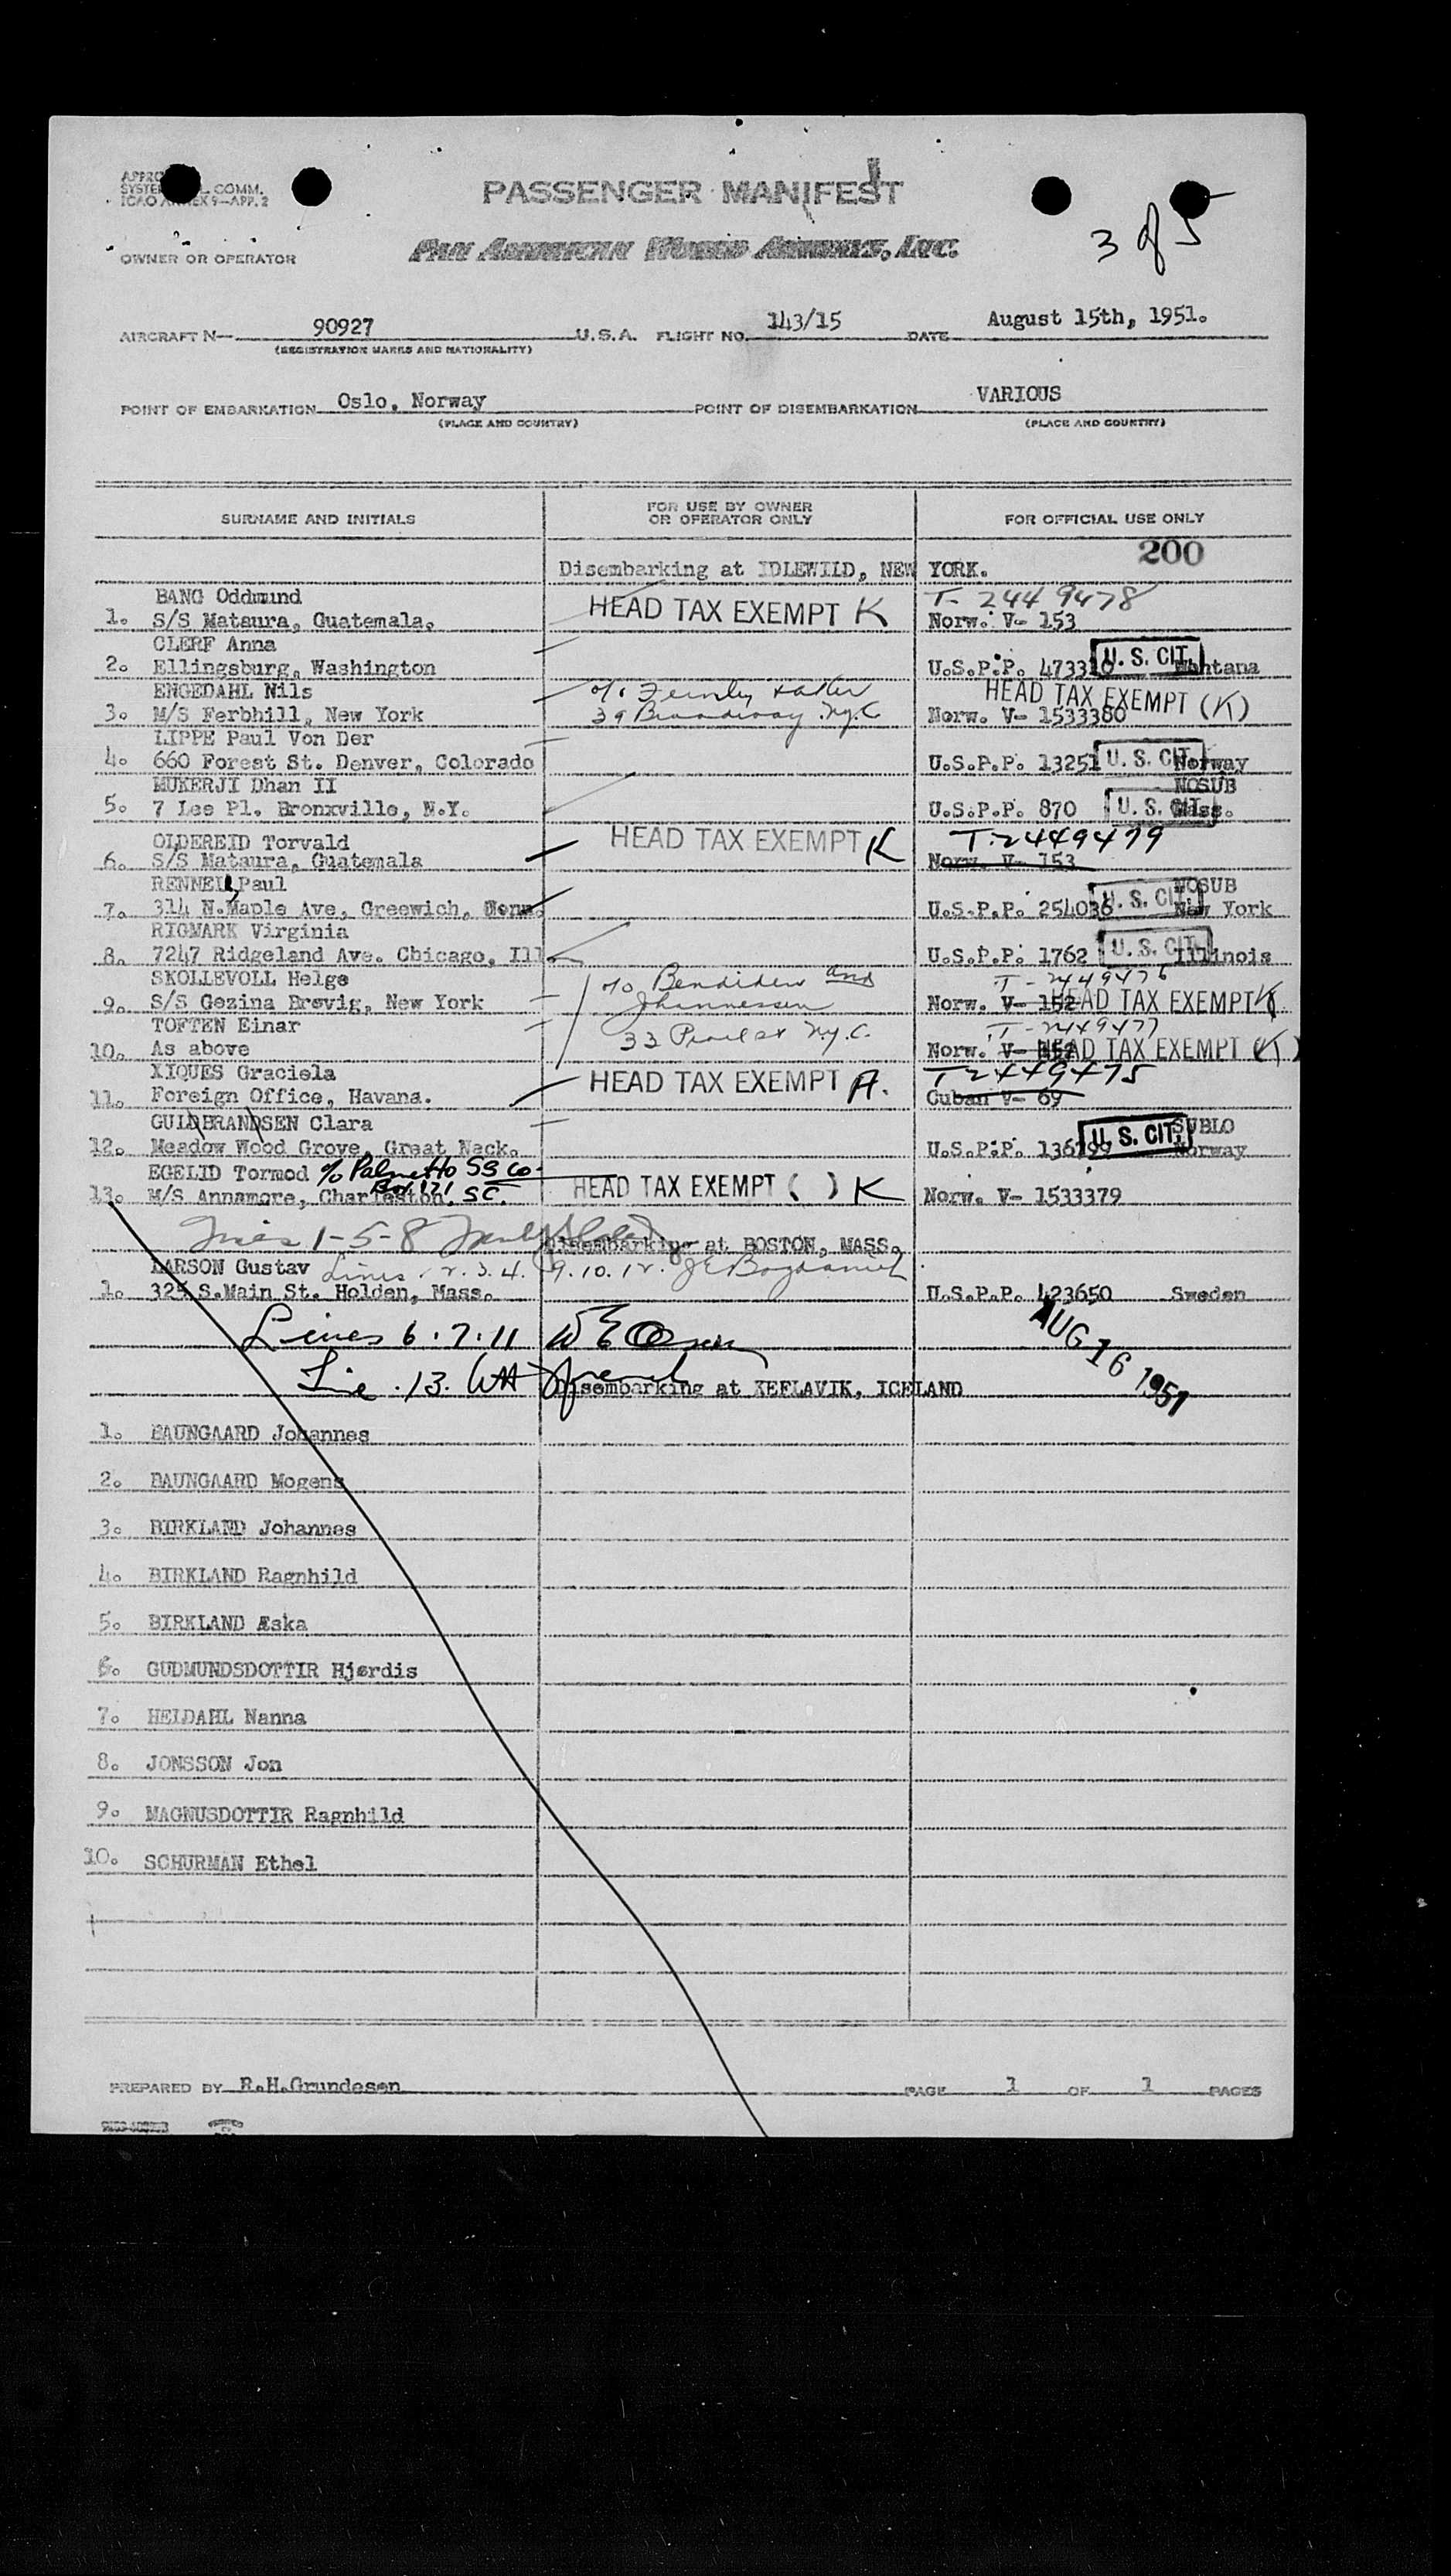 PASSENGER MANIFEST
L. COMM.
ICAO ANNEX 9—APP. 2
PAN AMERICAN WORLD AIRWAYS, INC.
3 of 5
OWNER OR OPERATOR
AIRCRAFT N— 90927 U.S.A. FLIGHT NO. 143/15 DATE August 15th, 1951.
(REGISTRATION MARKS AND NATIONALITY)
POINT OF EMBARKATION Oslo, Norway POINT OF DISEMBARKATION VARIOUS
(PLACE AND COUNTRY) (PLACE AND COUNTRY)
SURNAME AND INITIALS FOR USE BY OWNER OR OPERATOR ONLY FOR OFFICIAL USE ONLY
200
Disembarking at IDLEWILD, NEW YORK.
BANG Oddmund T- 2449478
1. S/S Mataura, Guatemala. HEAD TAX EXEMPT K Norw. V- 153
CLERF Anna
2. Ellingsburg, Washington U.S.P.P. 473310 U. S. CIT. Montana
ENGEDAHL Nils HEAD TAX EXEMPT (K)
3. M/S Fernhill, New York 39 Broadway N.Y.C. Norw. V- 1533380
LIPPE Paul Von Der
4. 660 Forest St. Denver, Colorado U.S.P.P. 13251 U. S. CIT. Norway
MUKERJI Dhan II NOSUB
5. 7 Lee Pl. Bronxville, N.Y. U.S.P.P. 870 U. S. CIT. Mass.
OLDEREID Torvald HEAD TAX EXEMPT K T-2449479
6. S/S Mataura, Guatemala Norw. V- 153
RENNELL, Paul NOSUB
7. 314 N.Maple Ave, Greewich, Conn. U.S.P.P. 254036 U. S. CIT. New York
RIGMARK Virginia
8. 7247 Ridgeland Ave. Chicago, Ill U.S.P.P. 1762 U. S. CIT. Illinois
SKOLLEVOLL Helge c/o Bendiden and T- 2449476
9. S/S Gezina Brevig, New York Johannessen Norw. V- 152 HEAD TAX EXEMPT K
TOFTEN Einar 33 Pearl St N.Y.C. T- 2449477
10. As above Norw. V- HEAD TAX EXEMPT (K)
XIQUES Graciela HEAD TAX EXEMPT A. T2449475
11. Foreign Office, Havana. Cuban V- 69
GULDBRANDSEN Clara SUBLO
12. Meadow Wood Grove, Great Neck. U.S.P.P. 136799 U. S. CIT. Norway
EGELID Tormod c/o Palmetto SS Co-
Box 171 SC.
13. M/S Annamore, Charleston, HEAD TAX EXEMPT ( ) K Norw. V- 1533379
Lines 1-5-8
Disembarking at BOSTON, MASS.
LARSON Gustav Lines 2. 3. 4. 9. 10. 12.
1. 325 S.Main St. Holden, Mass. U.S.P.P. 423650 Sweden
Lines 6.7.11
AUG 16 1951
Line 13.
Disembarking at KEFLAVIK, ICELAND
1. BAUNGAARD Johannes
2. BAUNGAARD Mogens
3. BIRKLAND Johannes
4. BIRKLAND Ragnhild
5. BIRKLAND Æska
6. GUDMUNDSDOTTIR Hjørdis
7. HELDAHL Nanna
8. JONSSON Jon
9. MAGNUSDOTTIR Ragnhild
10. SCHURMAN Ethel
PREPARED BY R.H.Grundesen PAGE 1 OF 1 PAGES